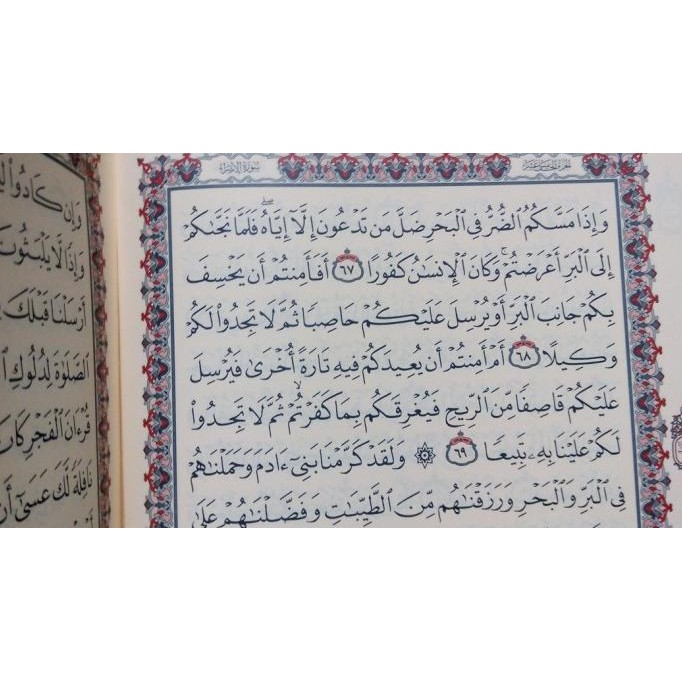 الجزء الخامس عشر
سورة الإسراء
وَإِذَا مَسَّكُمُ ٱلضُّرُّ فِي ٱلْبَحْرِ ضَلَّ مَن تَدْعُونَ إِلَّآ إِيَّاهُۖ فَلَمَّا نَجَّىٰكُمْ
إِلَى ٱلْبَرِّ أَعْرَضْتُمْۚ وَكَانَ ٱلْإِنسَٰنُ كَفُورًا ٦٧ أَفَأَمِنتُمْ أَن يَخْسِفَ
بِكُمْ جَانِبَ ٱلْبَرِّ أَوْ يُرْسِلَ عَلَيْكُمْ حَاصِبًا ثُمَّ لَا تَجِدُوا۟ لَكُمْ
وَكِيلًا ٦٨ أَمْ أَمِنتُمْ أَن يُعِيدَكُمْ فِيهِ تَارَةً أُخْرَىٰ فَيُرْسِلَ
عَلَيْكُمْ قَاصِفًا مِّنَ ٱلرِّيحِ فَيُغْرِقَكُم بِمَا كَفَرْتُمْۙ ثُمَّ لَا تَجِدُوا۟
لَكُمْ عَلَيْنَا بِهِۦ تَبِيعًا ٦٩ ۞ وَلَقَدْ كَرَّمْنَا بَنِيٓ ءَادَمَ وَحَمَلْنَٰهُمْ
فِي ٱلْبَرِّ وَٱلْبَحْرِ وَرَزَقْنَٰهُم مِّنَ ٱلطَّيِّبَٰتِ وَفَضَّلْنَٰهُمْ عَلَىٰ
وَإِن كَادُوا۟
وَإِذًا لَّا يَلْبَثُونَ
أَرْسَلْنَا قَبْلَكَ
ٱلصَّلَوٰةَ لِدُلُوكِ
قُرْءَانَ ٱلْفَجْرِ كَانَ
نَافِلَةً لَّكَ عَسَىٰٓ أَن